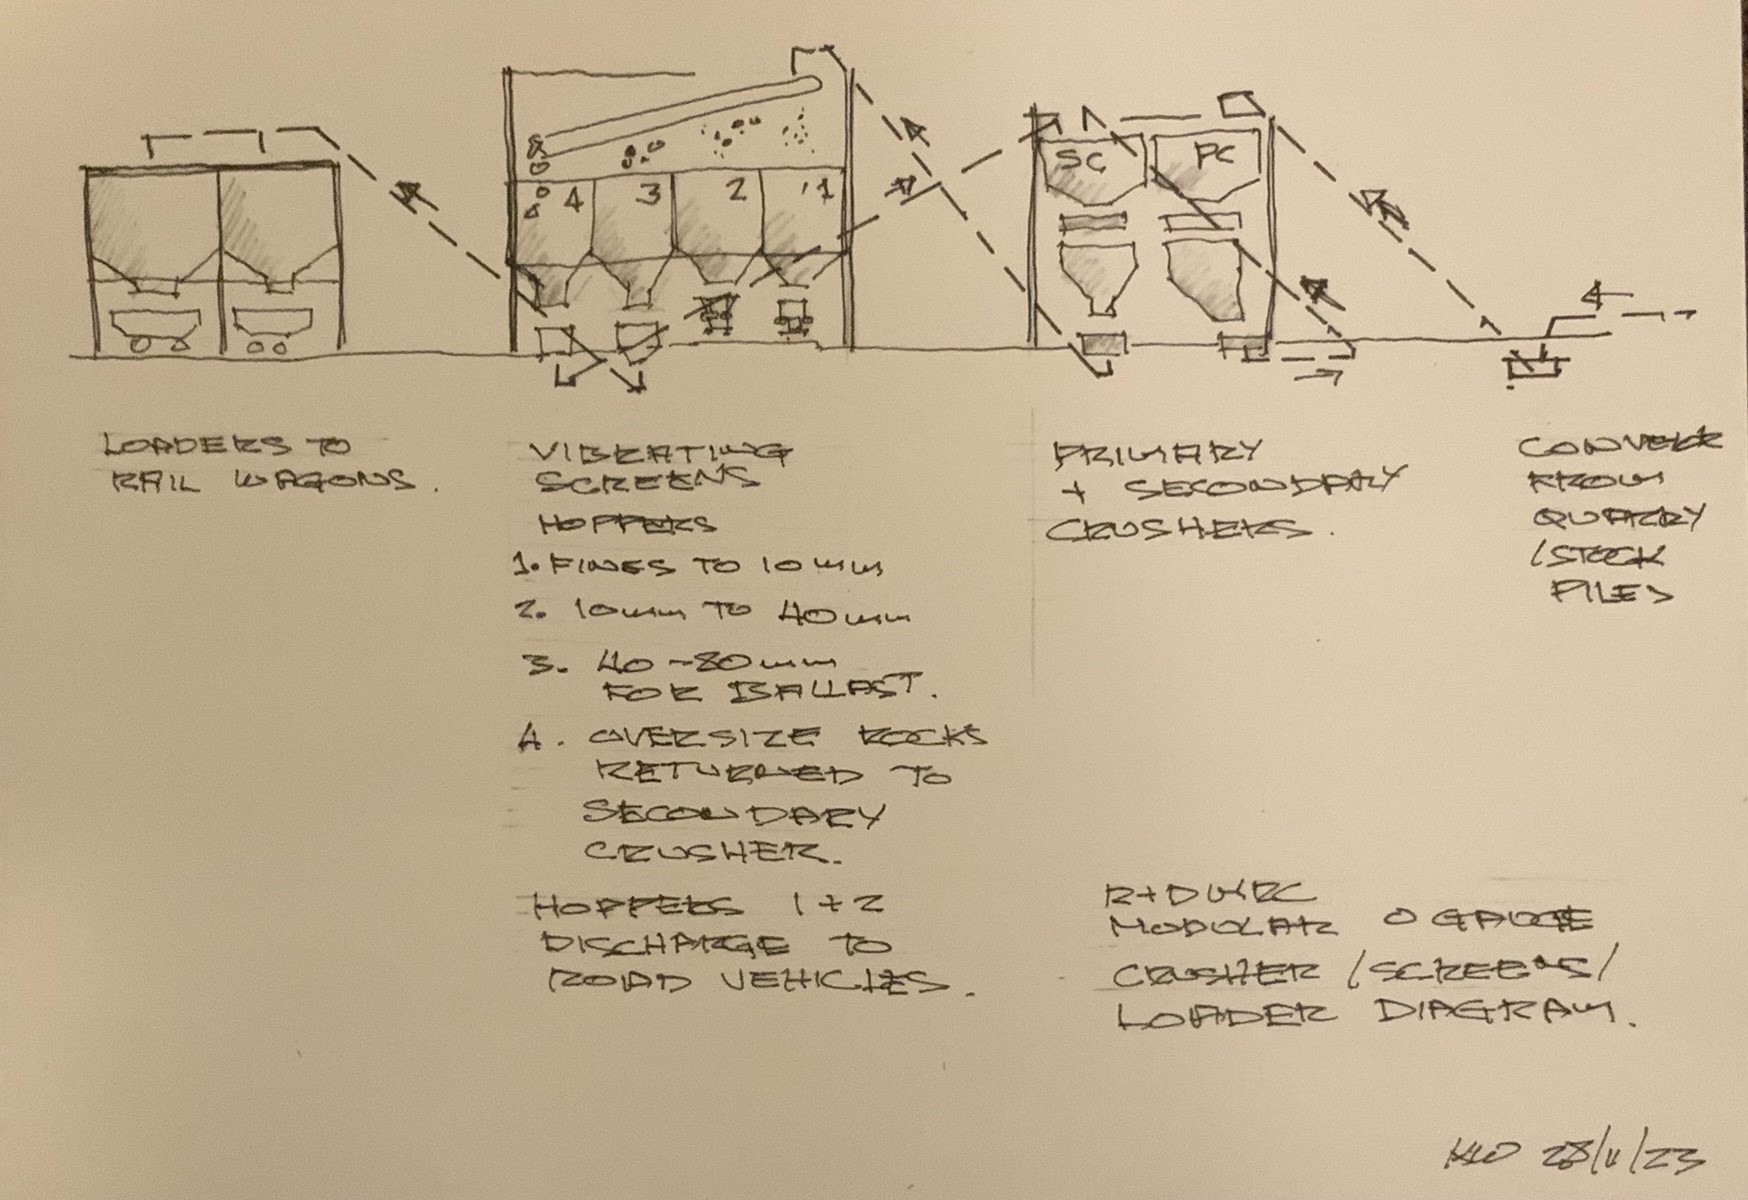 SC
PC
4
3
2
1
LOADERS TO
RAIL WAGONS.
VIBRATING
SCREENS
HOPPERS
1. FINES TO 10mm
2. 10mm TO 40mm
3. 40-80mm
FOR BALLAST.
4. OVERSIZE ROCKS
RETURNED TO
SECONDARY
CRUSHER.
HOPPERS 1+2
DISCHARGE TO
ROAD VEHICLES.
PRIMARY
+ SECONDARY
CRUSHERS.
CONVEYOR
FROM
QUARRY
/STOCK
PILES
MODULAR O GAUGE
CRUSHER/SCREENS/
LOADER DIAGRAM.
28/11/23